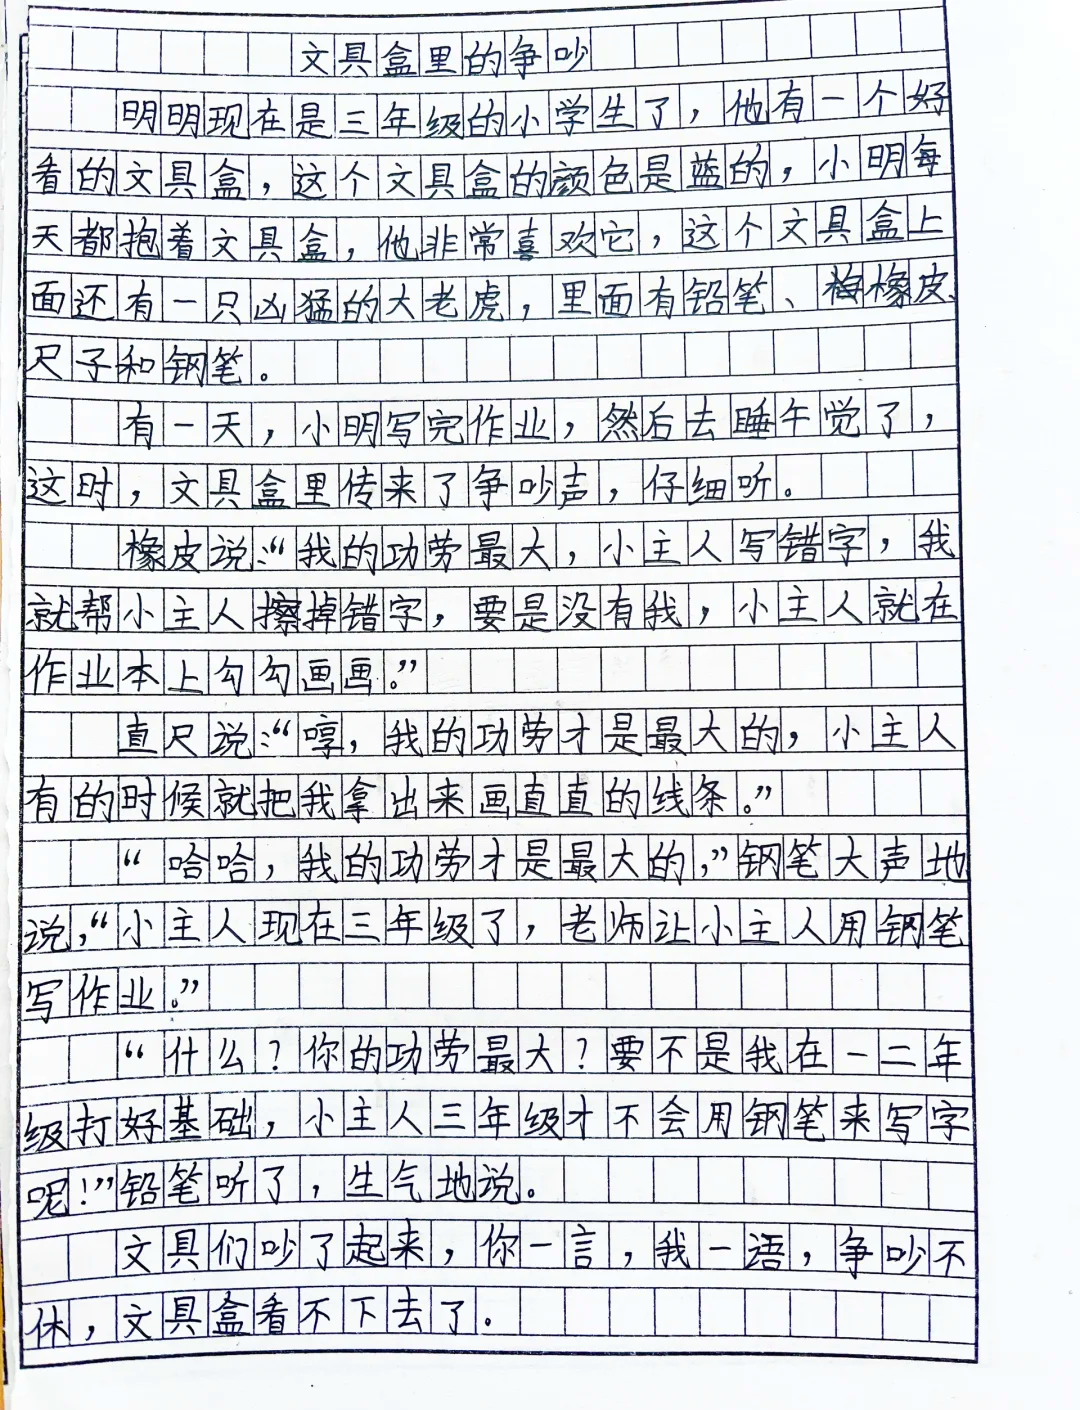 文具盒里的争吵
明明现在是三年级的小学生了，他有一个好
看的文具盒，这个文具盒的颜色是蓝的，小明每
天都抱着文具盒，他非常喜欢它，这个文具盒上
面还有一只凶猛的大老虎，里面有铅笔、橡皮、
尺子和钢笔。
有一天，小明写完作业，然后去睡午觉了，
这时，文具盒里传来了争吵声，仔细听。
橡皮说：“我的功劳最大，小主人写错字，我
就帮小主人擦掉错字，要是没有我，小主人就在
作业本上勾勾画画。”
直尺说：“哼，我的功劳才是最大的，小主人
有的时候就把我拿出来画直直的线条。”
“哈哈，我的功劳才是最大的，”钢笔大声地
说，“小主人现在三年级了，老师让小主人用钢笔
写作业。”
“什么？你的功劳最大？要不是我在一二年
级打好基础，小主人三年级才不会用钢笔来写字
呢！”铅笔听了，生气地说。
文具们吵了起来，你一言，我一语，争吵不
休，文具盒看不下去了。